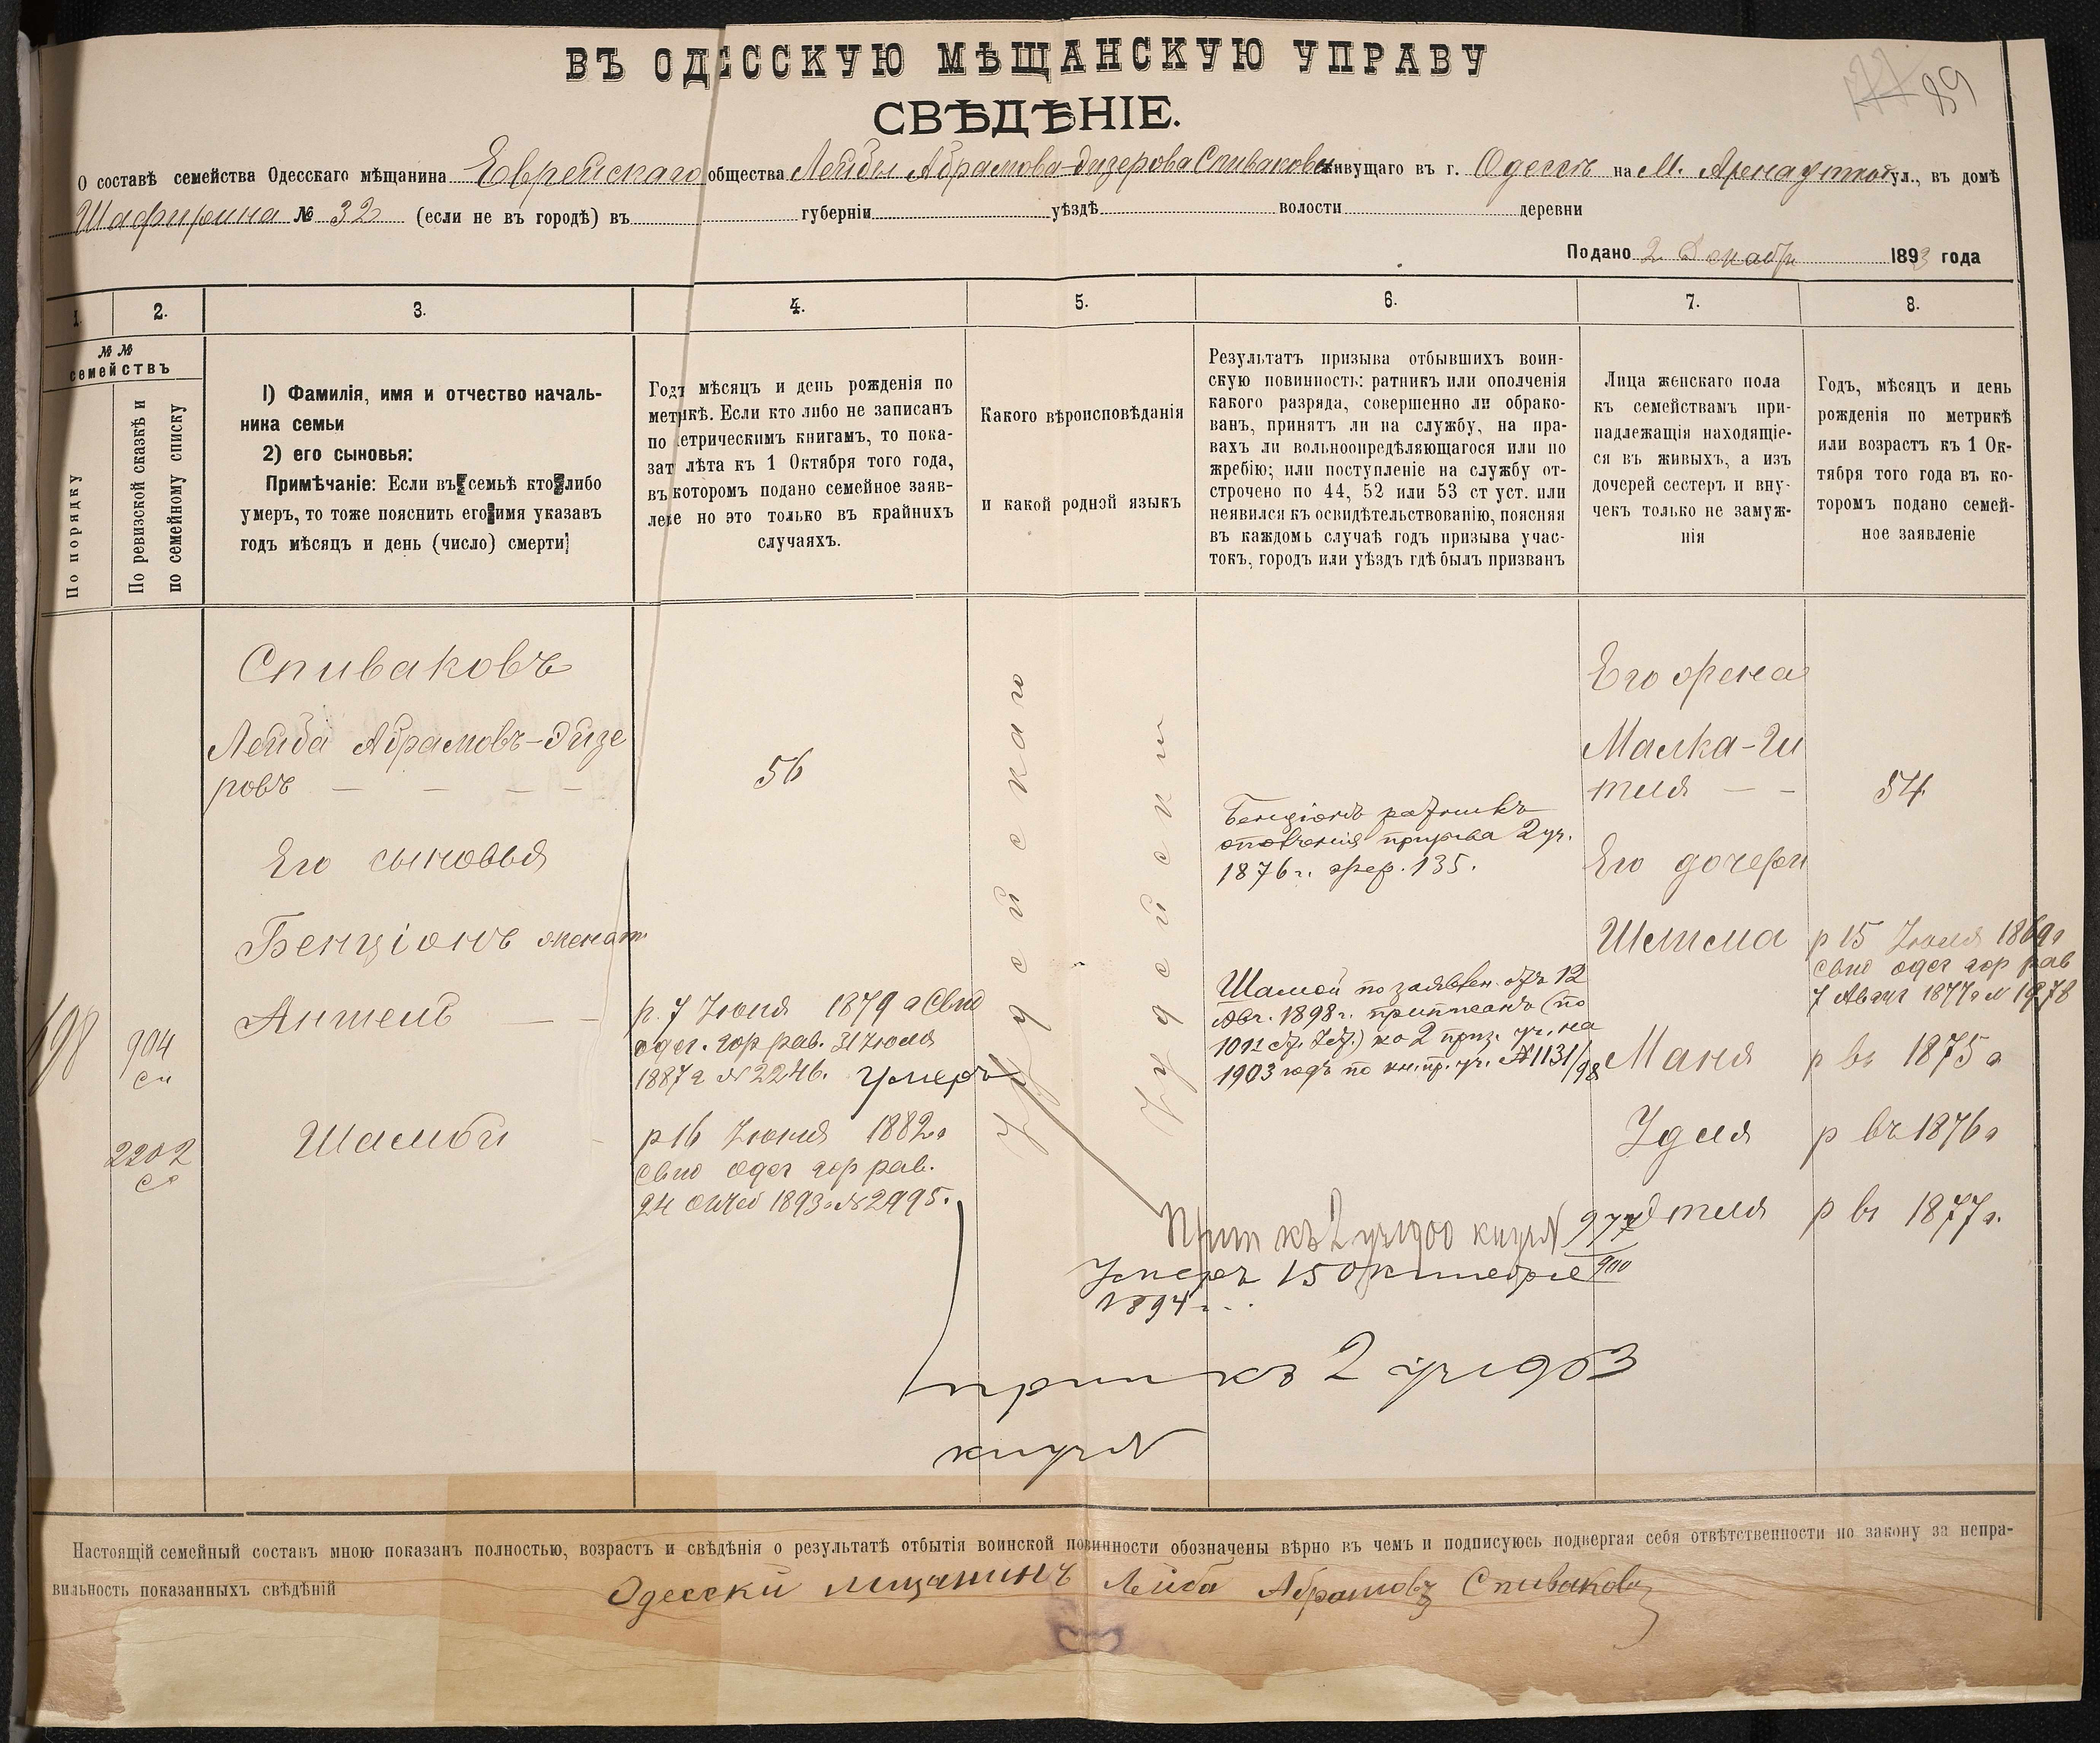 ВЪ ОДЕССКУЮ МѢЩАНСКУЮ УПРАВУ
СВѢДѢНІЕ.
89
О составѣ семейства Одесскаго мѣщанина Еврейскаго общества Лейбы Абрамова-Дизерова Спивакова живущаго въ г. Одессѣ на М. Арнаутской ул., въ домѣ
Шафирина № 32 (если не въ городѣ) въ губерніи уѣздѣ волости деревни
Подано 2 Декабр 1893 года
1. 2. 3. 4. 5. 6. 7. 8.
№ № семействъ
По порядку
По ревизской сказкѣ и по семейному списку
1) Фамилія, имя и отчество началь-
ника семьи
2) его сыновья:
Примѣчаніе: Если въ семьѣ кто либо
умеръ, то тоже пояснить его имя указавъ
годъ мѣсяцъ и день (число) смерти)
Годъ мѣсяцъ и день рожденія по
метрикѣ. Если кто либо не записанъ
по метрическимъ книгамъ, то пока-
зат лѣта къ 1 Октября того года,
въ которомъ подано семейное заяв-
леніе но это только въ крайнихъ
случаяхъ.
Какого вѣроисповѣданія
и какой родной языкъ
Результатъ призыва отбывшихъ воин-
скую повинность: ратникъ или ополченія
какого разряда, совершенно ли обрако-
ванъ, принятъ ли на службу, на пра-
вахъ ли вольноопредѣляющагося или по
жребію; или поступленіе на службу от-
строчено по 44, 52 или 53 ст уст. или
неявился къ освидѣтельствованію, поясняя
въ каждомъ случаѣ годъ призыва учас-
токъ, городъ или уѣздъ гдѣ былъ призванъ
Лица женскаго пола
къ семействамъ при-
надлежащія находящіе-
ся въ живыхъ, а изъ
дочерей сестеръ и вну-
чекъ только не замуж-
нія
Годъ, мѣсяцъ и день
рожденія по метрикѣ
или возрастъ къ 1 Ок-
тября того года въ ко-
торомъ подано семей-
ное заявленіе
Спиваковъ
Лейба Абрамовъ-Дизе
ровъ
56
Его сыновья
Бенціонъ женат
698
904
сп
Аншель
р. 7 Іюня 1879 г Свид
одес. гор рав. 31 Іюля
1887 г № 2246. Умеръ
2202
Шамой
р 16 Іюня 1882 г
свид одес гор рав.
24 1893 г № 2995.
Іудейскаго
Іудейск
Бенціонъ ратникъ
ополченія призыва 2 уч.
1876 г. жер. 135.
Шамой по заявлен. отъ 12
Авг. 1898 г. приписанъ (по
) ко 2 приз. уч. на
1903 годъ по кн. пр. уч. № 1131/98
Прип къ 2 уч 1900 кн уч № 977/900
Умеръ 15 Октября
1894 г.
прип къ 2 уч 1903
кн уч №
Его жена
Малка-Ги
теля
54
Его дочери
Шейма р 15 Іюля 1869 г
свид одес гор рав
7 Авгус 1877 г № 1978
Маня р въ 1875 г
Удля р въ 1876 г
Этля р въ 1877 г.
Настоящій семейный составъ мною показанъ полностью, возрастъ и свѣдѣнія о результатѣ отбытія воинской повинности обозначены вѣрно въ чемъ и подписуюсь подвергая себя отвѣтственности по закону за непра-
вильность показанныхъ свѣдѣній Одесски мищанинъ Лейба Абрамовъ Спиваковъ